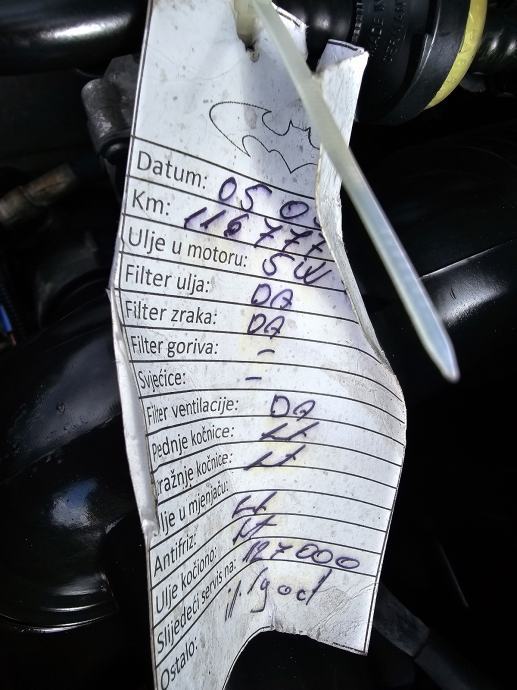 Datum: 05 0
Km: 116777
Ulje u motoru: 5W
Filter ulja: DA
Filter zraka: DA
Filter goriva: -
Svjećice: -
Filter ventilacije: DA
Pednje kočnice:
ražnje kočnice:
lje u mjenjaču:
Antifriz:
Ulje kočiono:
Slijedeći servis na: 127000
Ostalo: 1/god